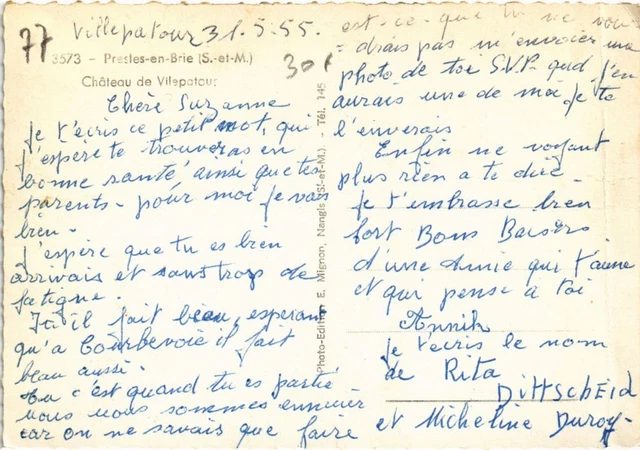 77 Villepatour 31.5.55.
3573 – Presles-en-Brie (S.-et-M.)
Château de Vilepatour
30f
Chère Suzanne
je t'écris ce petit mot, qui
j'espère te trouveras en
bonne santé ainsi que tes
parents - pour moi je vais
bien -
j'espère que tu es bien
arrivais et sans trop de
fatigue.
Ici il fait beau, esperans
qu'a Courbevoie il fait
beau aussi.
Tu c'est quand tu es partie
nous nous sommes ennuier
car on ne savais que faire
Photo-Edition E. Mignon, Nangis (S.-et-M.) - Tél. 145
est-ce-que tu ne vou-
-drais pas m'envoier une
photo de toi S.V.P. qud j'en
aurais une de moi je te
l'enverais
Enfin ne voyant
plus rien a te dire -
je t'embrasse bien
fort Bons Baisers
d'une Amie qui t'aime
et qui pense a toi
Annik
je t'écris le nom
de Rita
Dittscheid
et Micheline Duroy